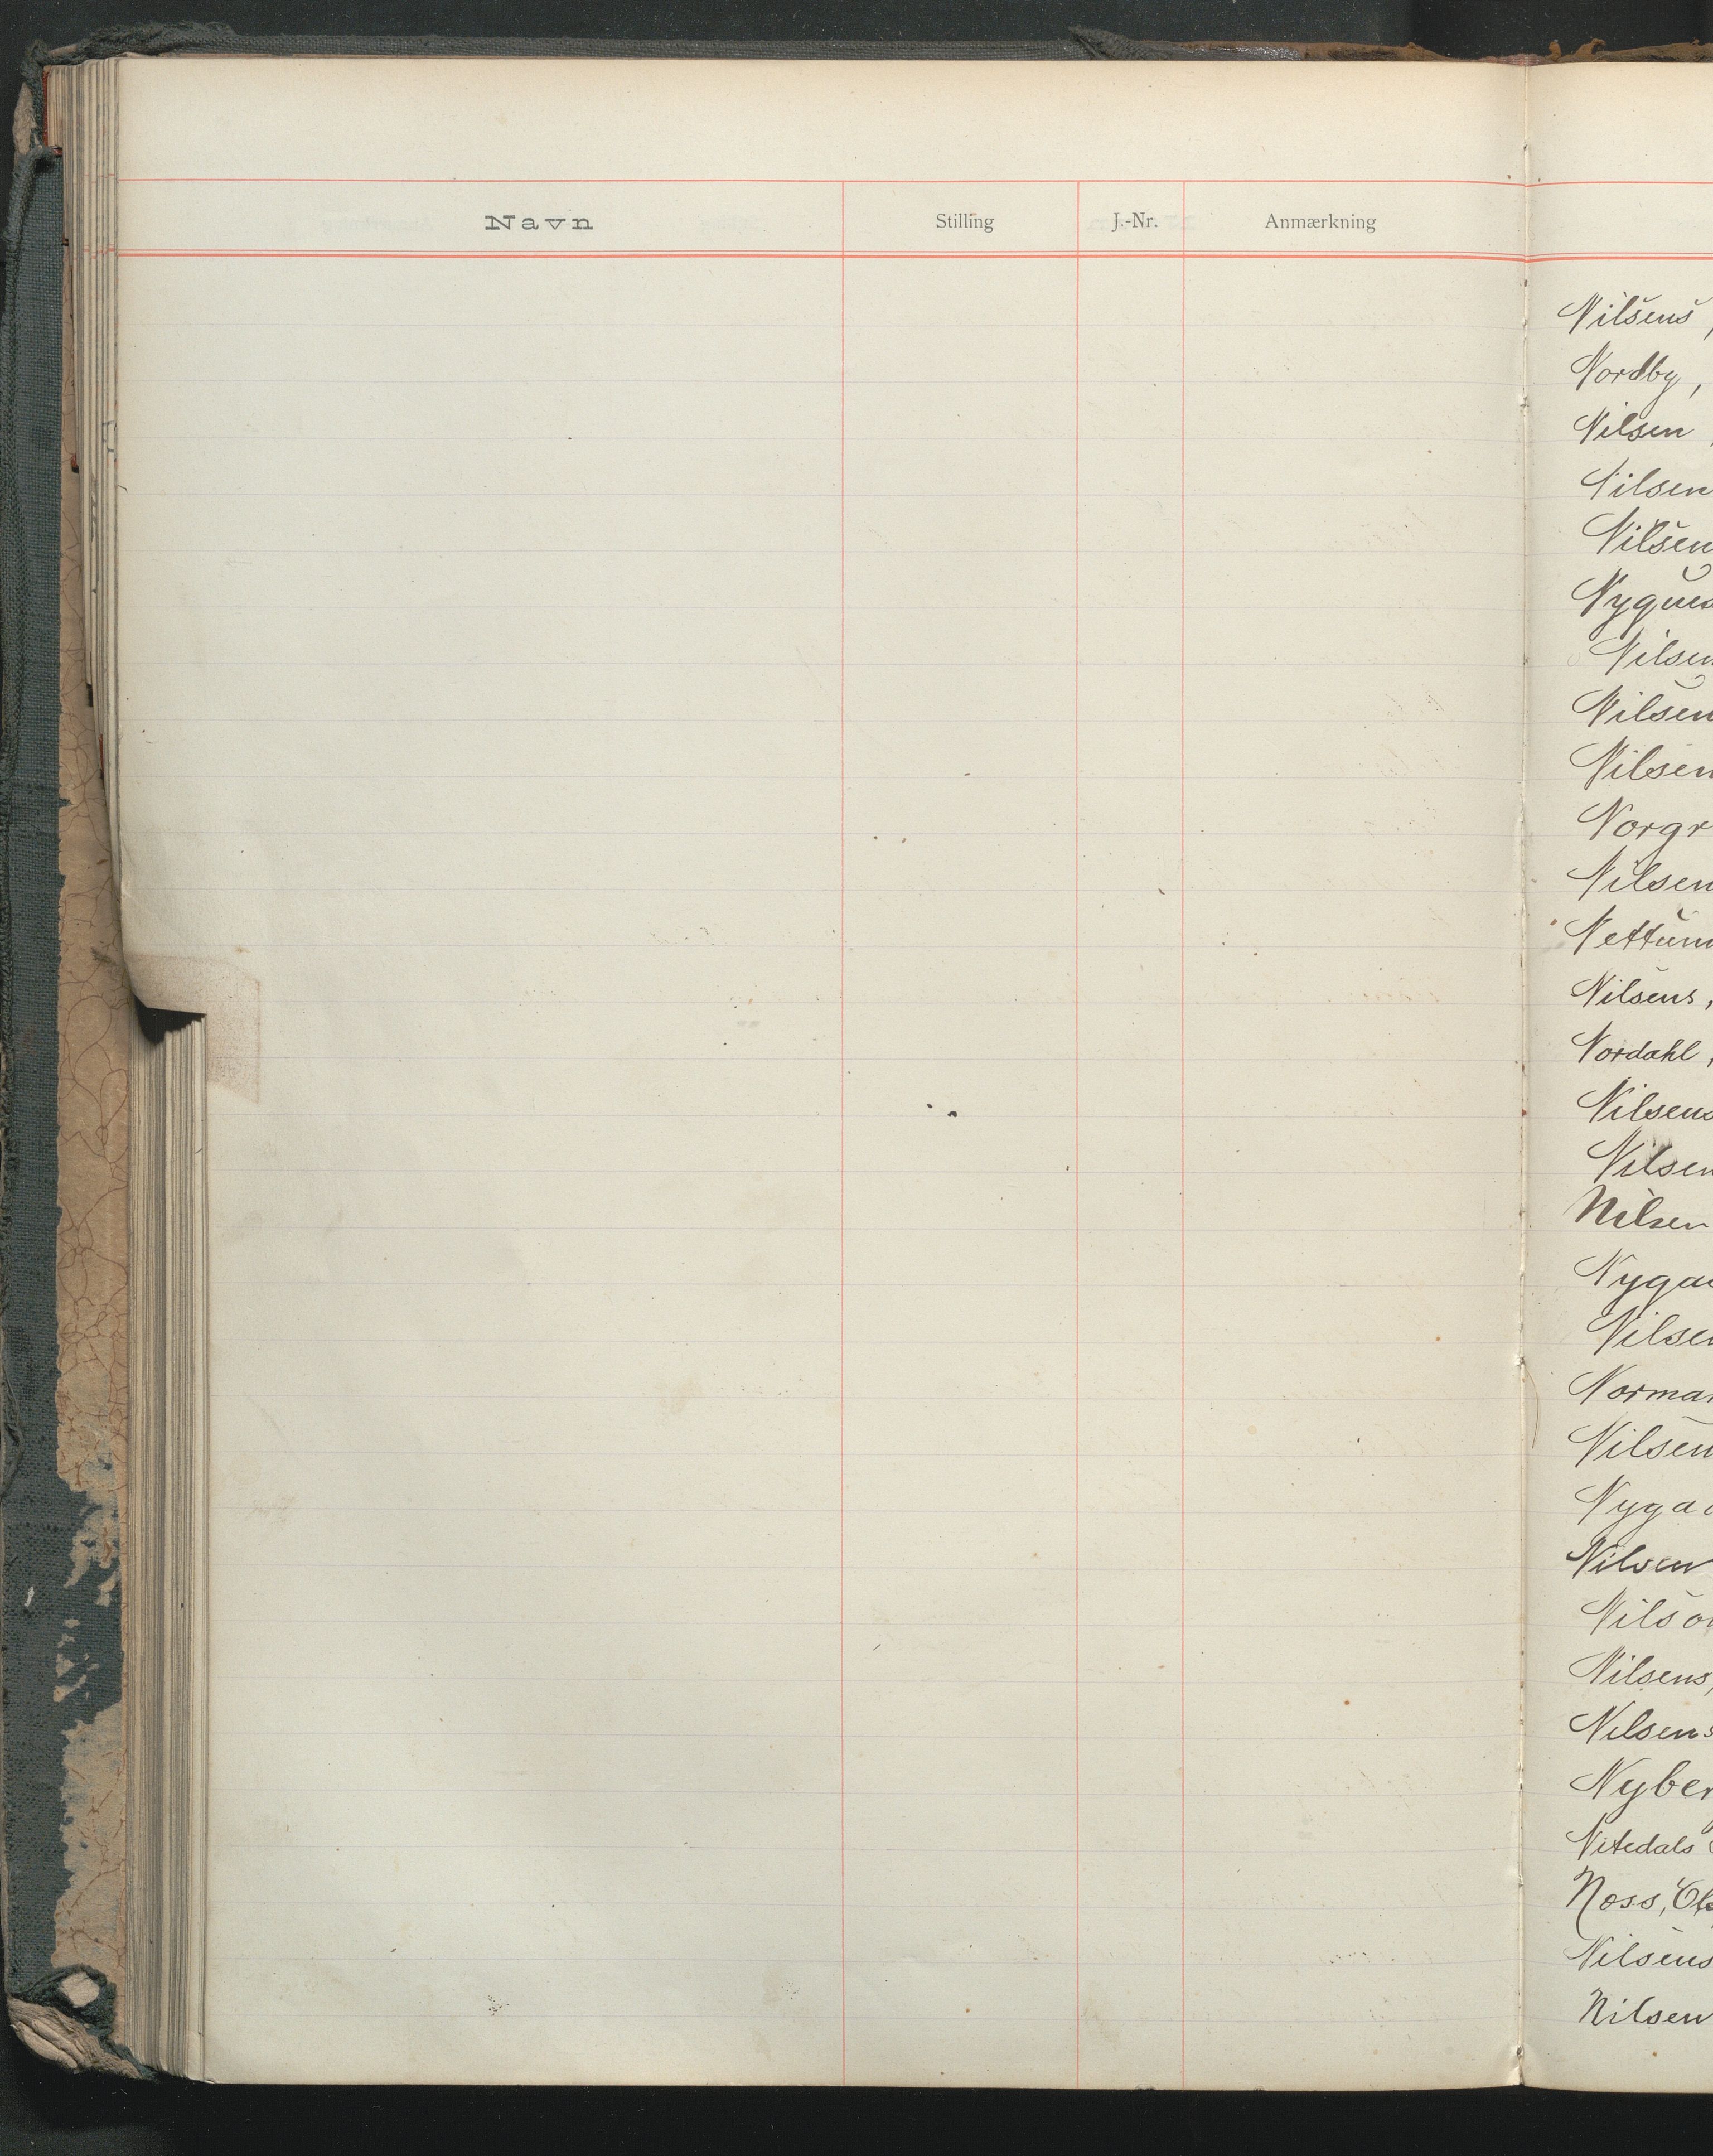 Navn Stilling J.-Nr. Anmærkning
Nilsens,
Nordby,
Nilsen,
Nilsen
Nilsen
Nygues
Nilsen
Nilsen
Nilsen
Norgr
Nilsen
Nettum
Nilsens,
Nordahl,
Nilsens
Nilsen
Nilsen
Nygaa
Nilsen
Norman
Nilsen
Nygaa
Nilsen
Nilson
Nilsens,
Nilsens
Nyber
Nitedals
Noss, Ols
Nilsens
Nilsen